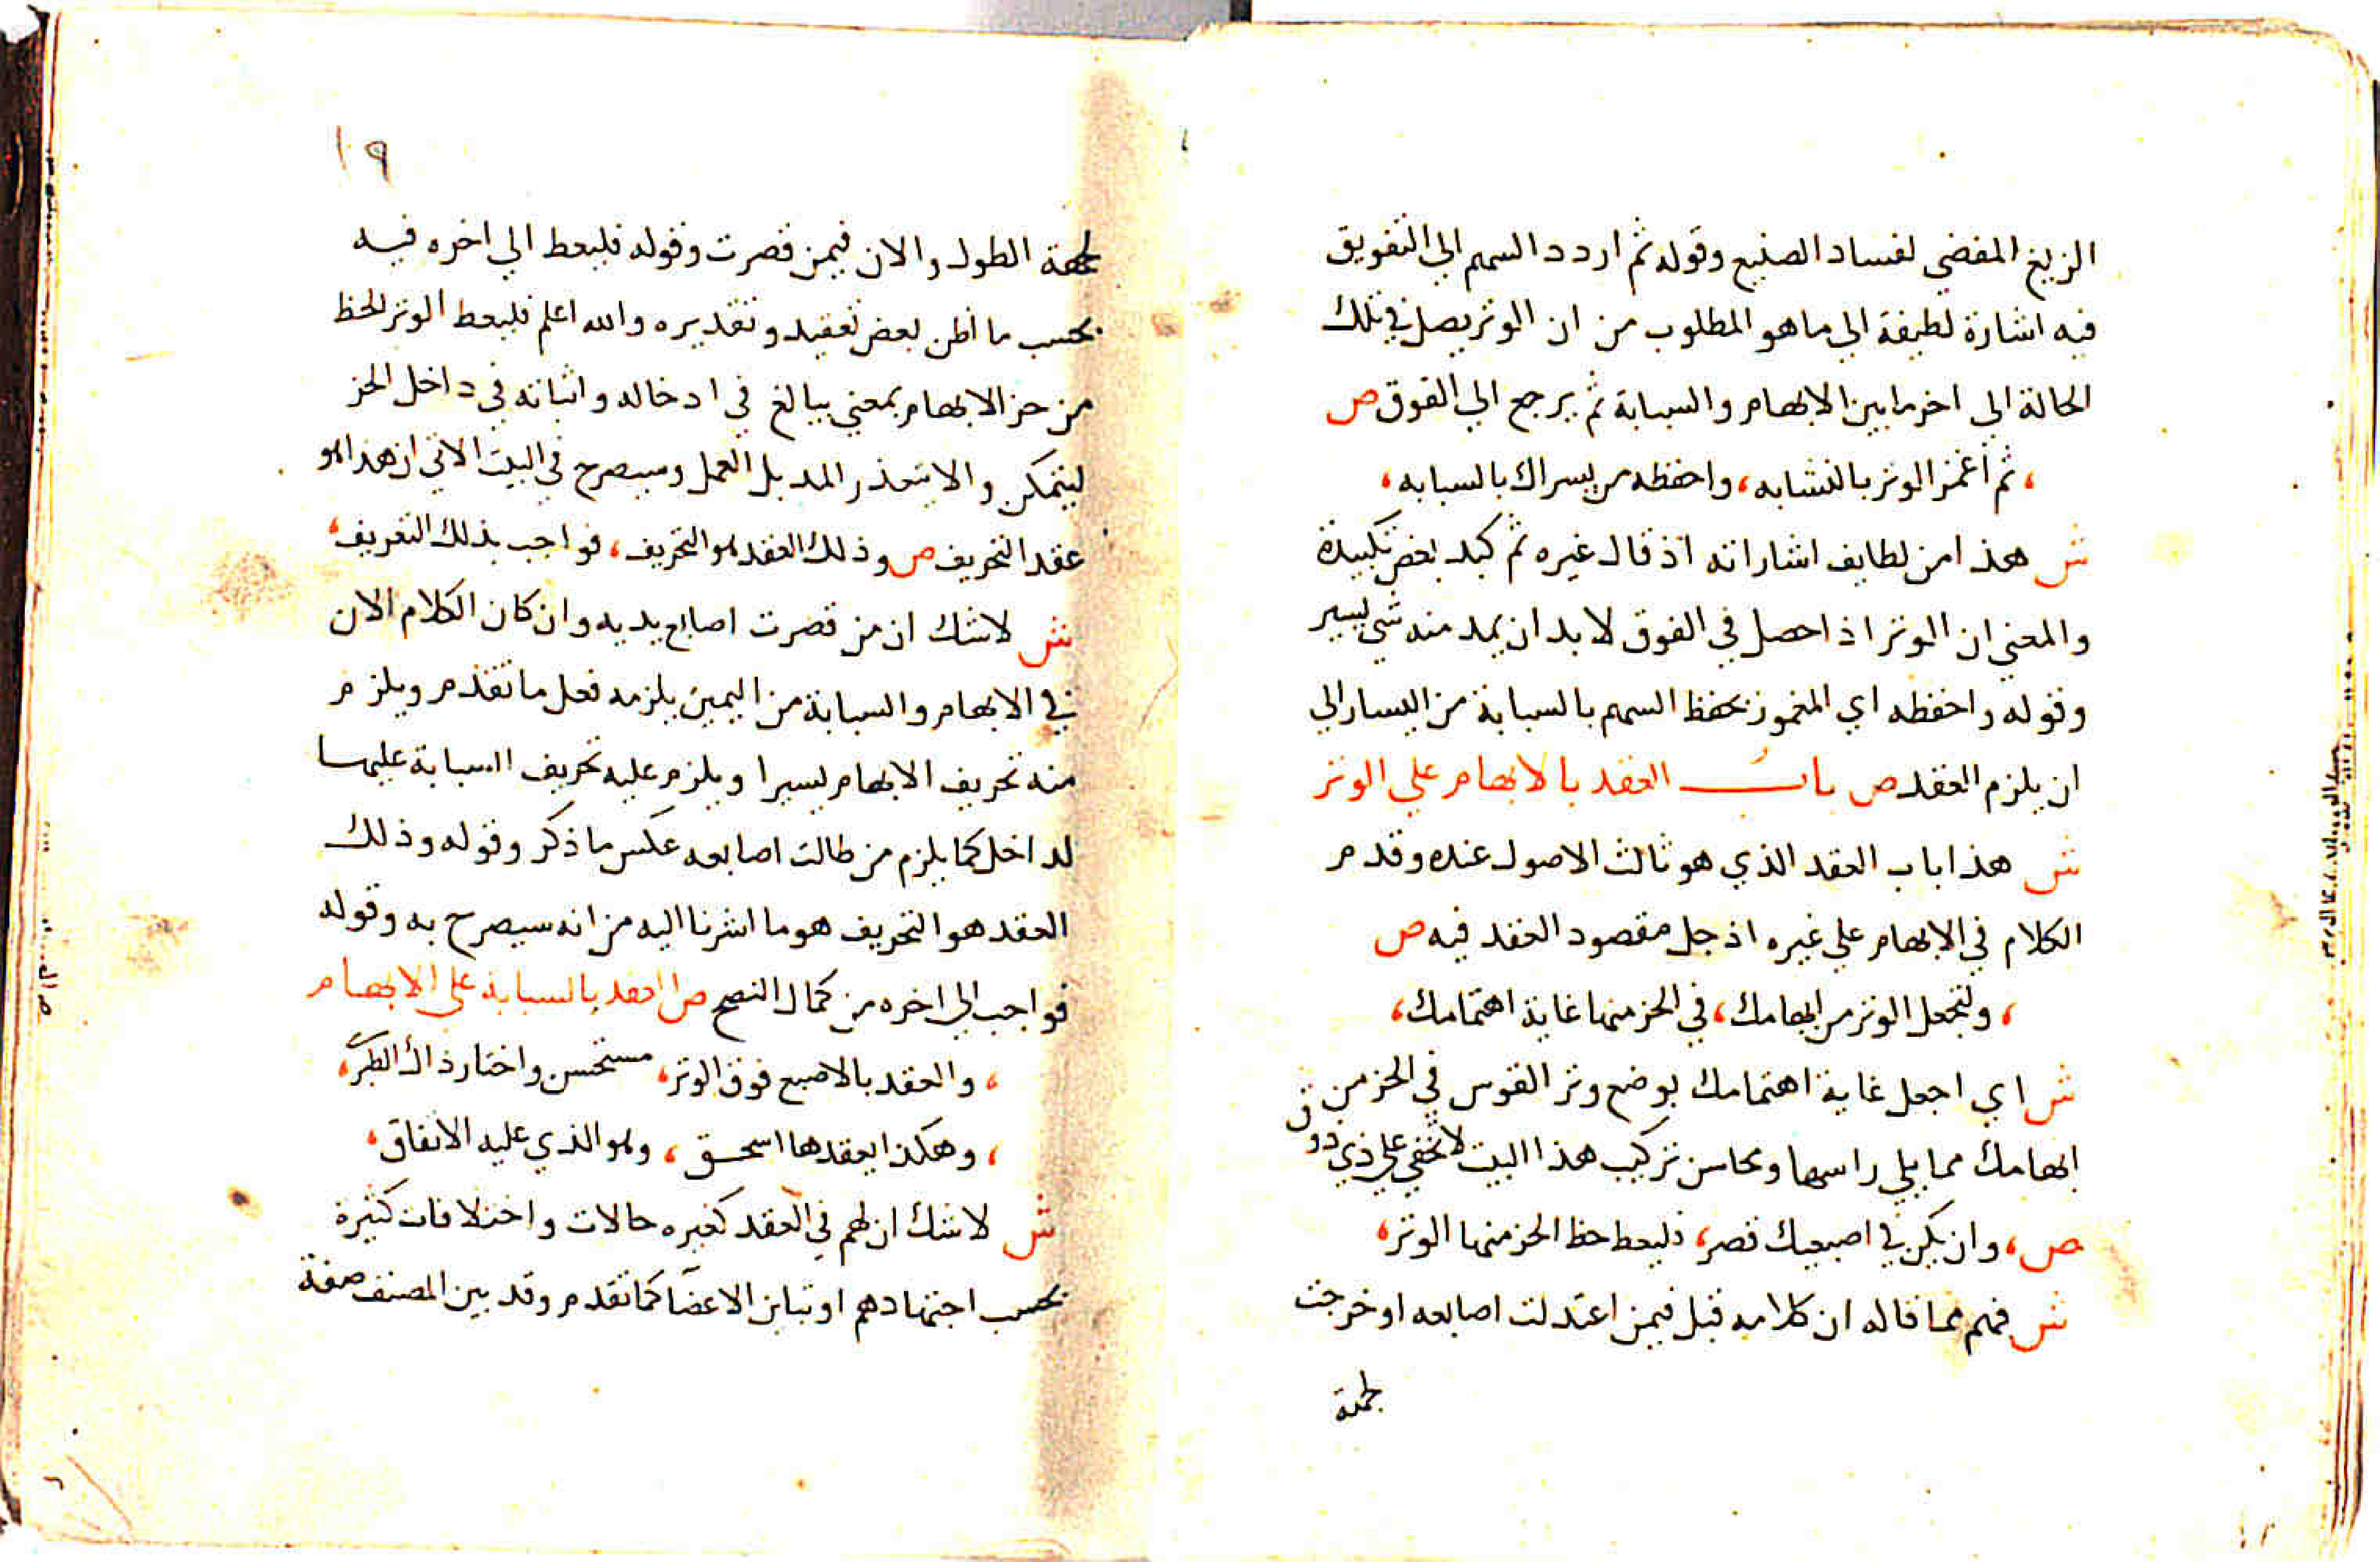 الزيغ المفضي لفساد الصنيع وقوله ثم اردد السهم الي التفويق
فيه اشارة لطيفة الي ما هو المطلوب من ان الوتر يصل في تلك
الحالة الي اخر ما بين الابهام والسبابة ثم يرجع الي الفوق ص
، ثم أغمز الوتر بالنشابه ، واحفظه من يسراك بالسبابه ،
ش هذا من لطايف اشاراته اذ قال غيره ثم كبد بعض تكبيدة
والمعني ان الوتر اذا حصل في الفوق لا بد ان يمد منه شي يسير
وقوله واحفظه اي المغموز بحفظ السهم بالسبابة من اليسار الي
ان يلزم العقد ص باب العقد بالابهام علي الوتر
ش هذا باب العقد الذي هو ثالث الاصول عنده وقدم
الكلام في الابهام علي غيره اذ جل مقصود العقد فيه ص
، ولتجعل الوتر من ابهامك ، في الحز منها غاية اهتمامك ،
ش اي اجعل غاية اهتمامك بوضع وتر القوس في الحز من
ابهامك مما يلي راسها ومحاسن تركيب هذا البيت لا تخفي علي ذي ذوق
ص ، وان يكن في اصبعيك قصر ، فليعط حظ الحز منها الوتر ،
ش فهم مما قاله ان كلامه قبل فيمن اعتدلت اصابعه او خرجت
لجهة
١٩
لجهة الطول والان فيمن قصرت وقوله فليعط الي اخره فيه
بحسب ما أظن بعض تعقيد وتقديره والله اعلم فليعط الوتر الحظ
من حز الابهام بمعني يبالغ في ادخاله واثباته في داخل الحز
ليتمكن والا يتعذر المد بل العمل وسيصرح في البيت الاتي ان هذا هو
عقد التحريف ص وذلك العقد هو التحريف ، فواجب بذلك التعريف ،
ش لا شك ان من قصرت اصابع يديه وان كان الكلام الان
في الابهام والسبابة من اليمين يلزمه فعل ما تقدم ويلزم
منه تحريف الابهام يسيرا ويلزم عليه تحريف السبابة عليها
لداخل كما يلزم من طالت اصابعه عكس ما ذكر وقوله وذلك
العقد هو التحريف هو ما اشرنا اليه من انه سيصرح به وقوله
فواجب الي اخره من كمال النصح ص العقد بالسبابة علي الابهام
، والعقد بالاصبع فوق الوتر ، مستحسن واختار ذاك الطبري ،
، وهكذا يعقدها اسحق ، وهو الذي عليه الاتفاق ،
ش لا شك ان لهم في العقد كغيره حالات واختلافات كثيرة
بحسب اجتهادهم او تباين الاعضآ كما تقدم وقد بين المصنف صفة